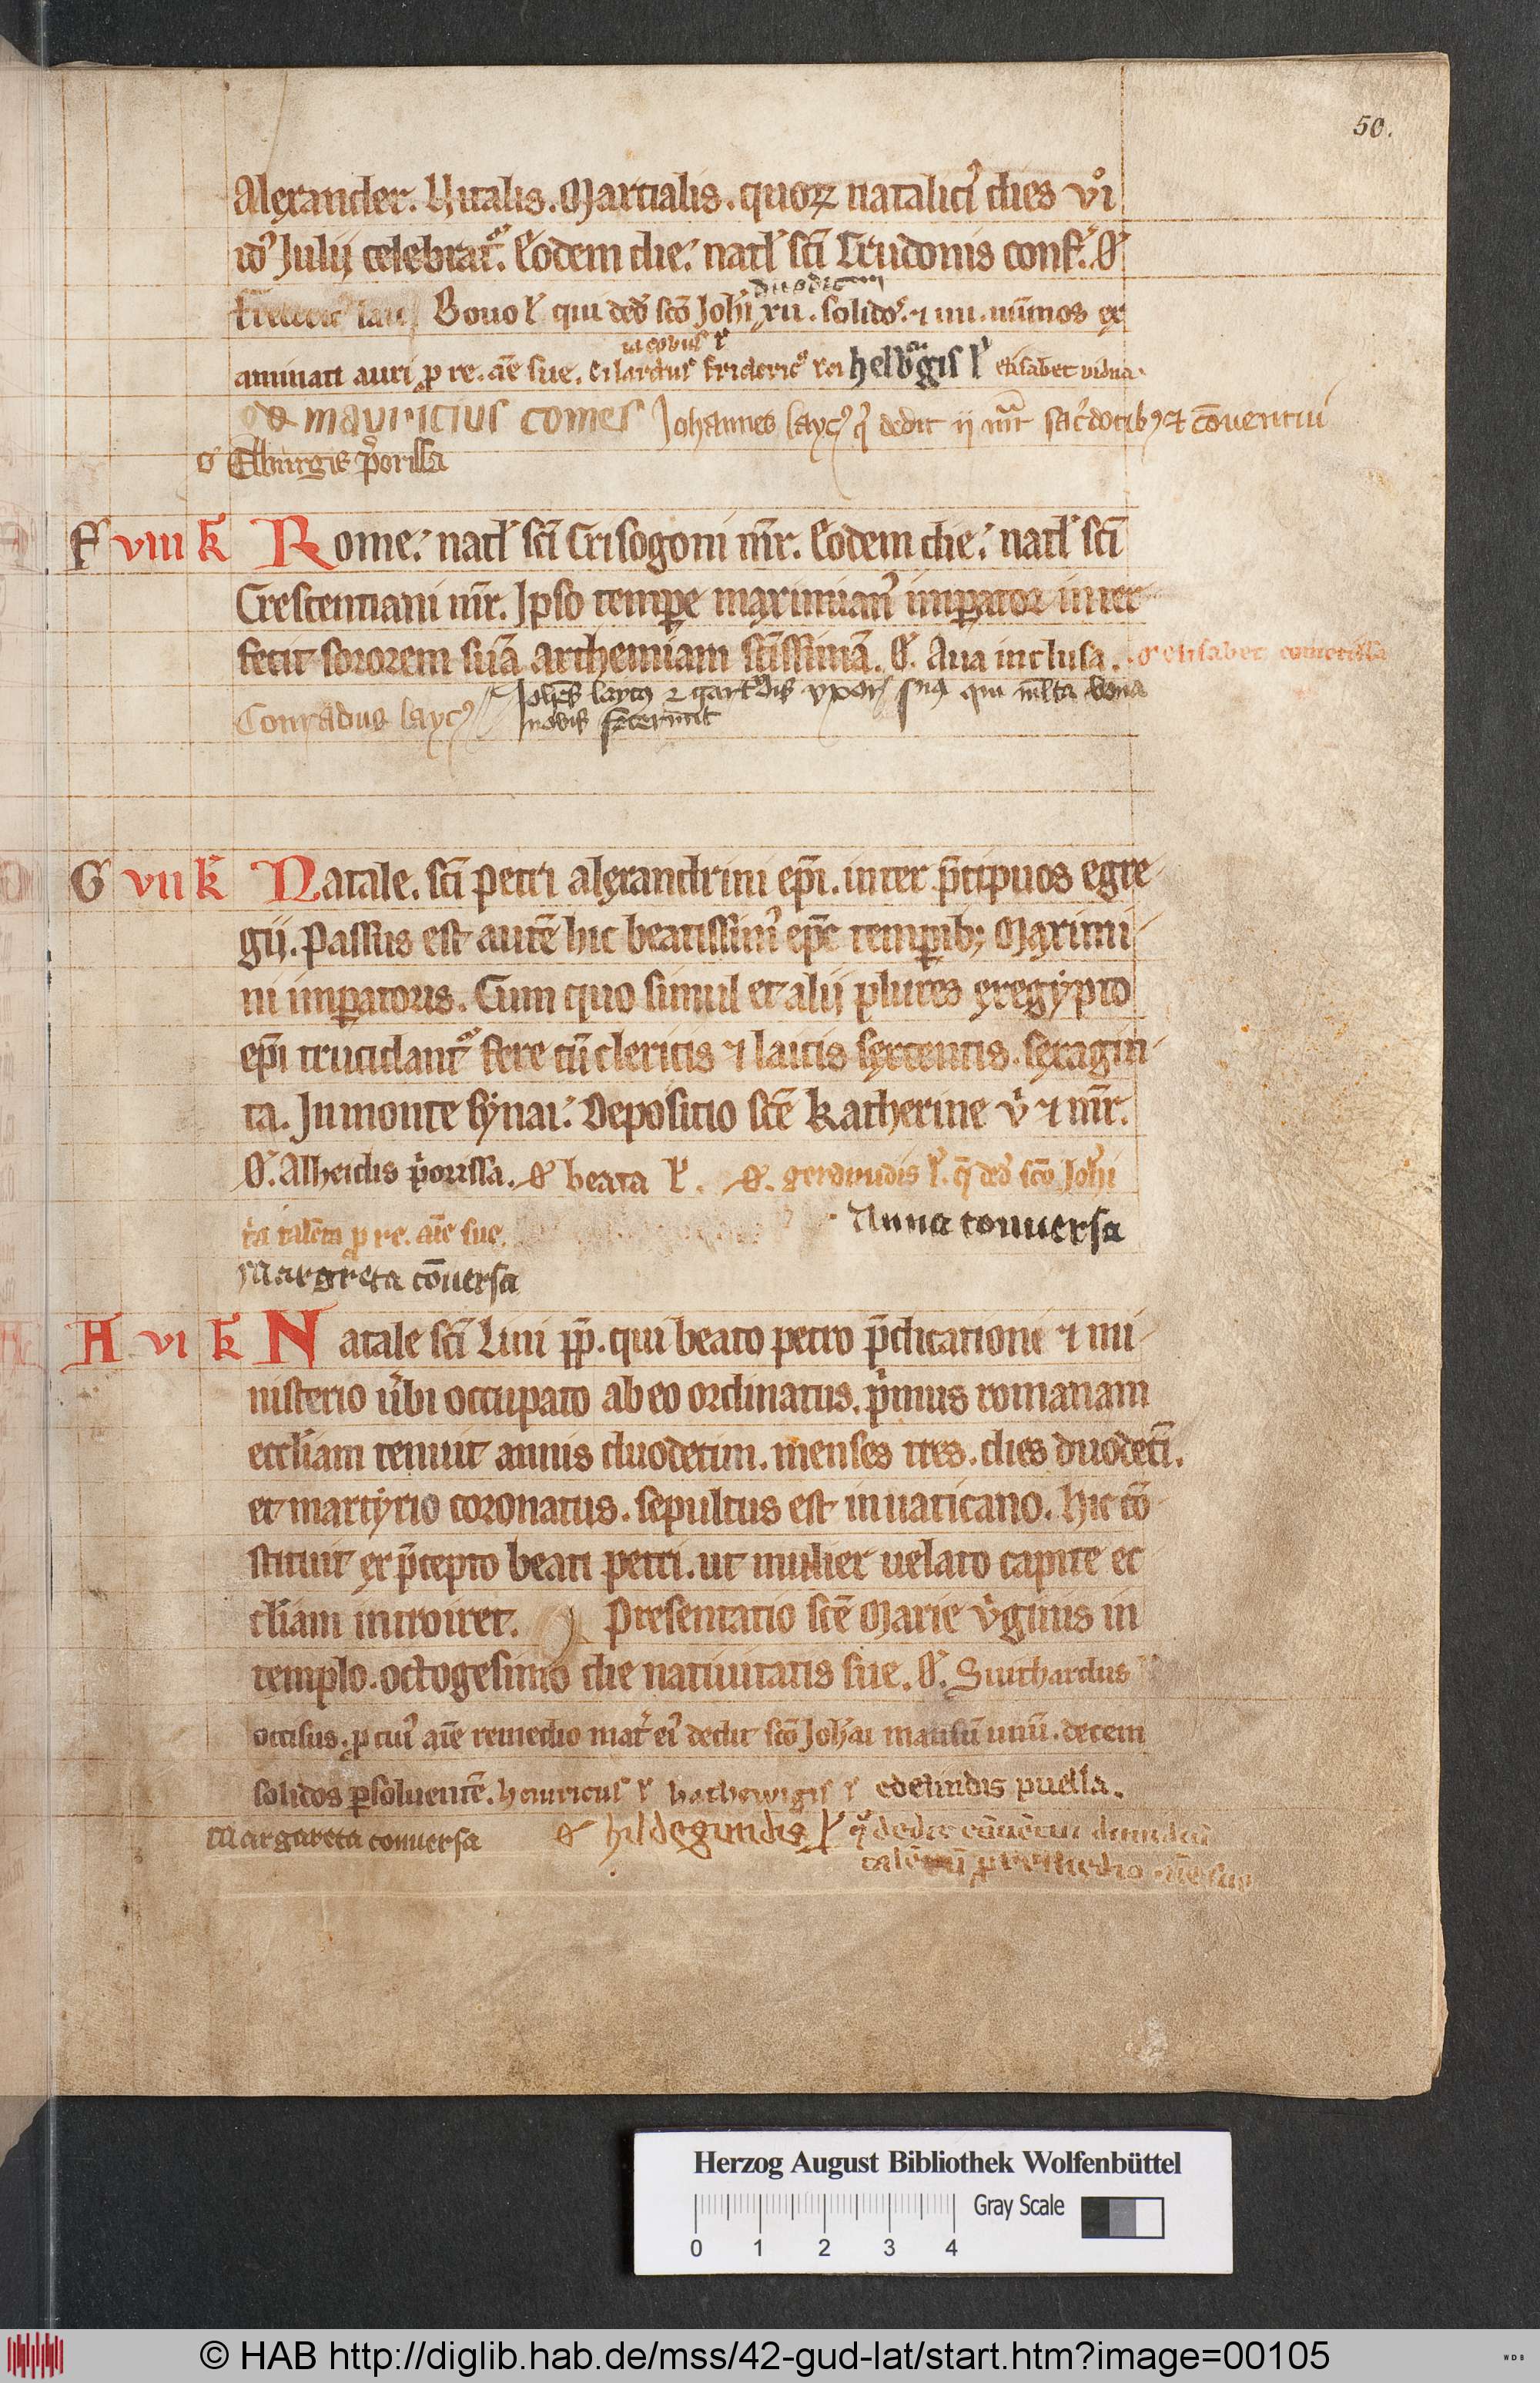 50.
Alexander. Vitalis. Martialis. quoꝝ natalicꝰ dies vi
idꝰ Julij celebrat᷑. Eodem die. natl' sc̄i Trudonis conf. Oꝰ
duodecim
Bouo l' qui ded' sc̄o Joh'i xii. solidoꝰ. ⁊ iiii. nūmos ex
iacobus l'
aminati auri ꝓ re. aīe sue. Eilardus frideric' helb'gis l' elisabet uidua.
mauricius comes Johannes layc' q' dedit ij mr̄ sac'dotibꝫ ⁊ cōuentui
oꝰ Elburgis p'orissa
F viii k̄ Rome. natl' sc̄i Crisogoni mr̄. Eodem die. natl' sc̄i
Crescentiani mr̄. Ipso tempe maximianꝰ impator inter
fecit sororem suā archemiam sc̄issimā. Oꝰ. Aua inclusa. oꝰ elisabet comitissa
Joh̄es laycꝰ ⁊ gart'dis vxor sua qui m̄lta bona
Conradus laycꝰ nobis fecerunt
G vii k̄ Natale. sc̄i Petri alexandrini ep̄i. inter p̄cipuos egre
gij. Passus est autē hic beatissimꝰ ep̄c tempib; Maximi
ni impatoris. Cum quo simul et alij plures exegypto
ep̄i trucidant᷑ fere cū clericis ⁊ laicis sexcentis. sexagin
ta. In monte synai. Depositio sc̄e Katherine v' ⁊ mr̄.
Oꝰ. Alheidis p'orissa. Oꝰ beata l'. Oꝰ. gerdrudis l'. q̄ ded' sc̄o Joh'i
t'a talēta ꝓ re. aīe sue. Anna conuersa
Margreta cōuersa
A vi k̄ Natale sc̄i Lini pp̄. qui beato petro p̄dicationi ⁊ mi
nisterio u'bi occupato ab eo ordinatus. p'mus romanam
eccl'iam tenuit annis duodecim. menses tres. dies duodecī.
et martyrio coronatus. sepultus est in uaticano. Hic cō
stituit ex p̄cepto beati petri. ut mulier uelato capite ec
cl'iam introiret. Presentatio sc̄e Marie v'ginis in
templo. octogesimo die natiuitatis sue. Oꝰ. Suithardus
occisus. ꝓ cuiꝰ aīe remedio mat' eiꝰ dedit sc̄o Joh'ai mansū unū. decem
solidos ꝑsoluentē. henricus l' hathewigis l' edelindis puella.
Margareta conuersa Oꝰ hildegundis l' q' dedit cōuētui dimidiū
talētū ꝓ remedio aīe sue
Herzog August Bibliothek Wolfenbüttel
Gray Scale
0 1 2 3 4
© HAB http://diglib.hab.de/mss/42-gud-lat/start.htm?image=00105
WDB